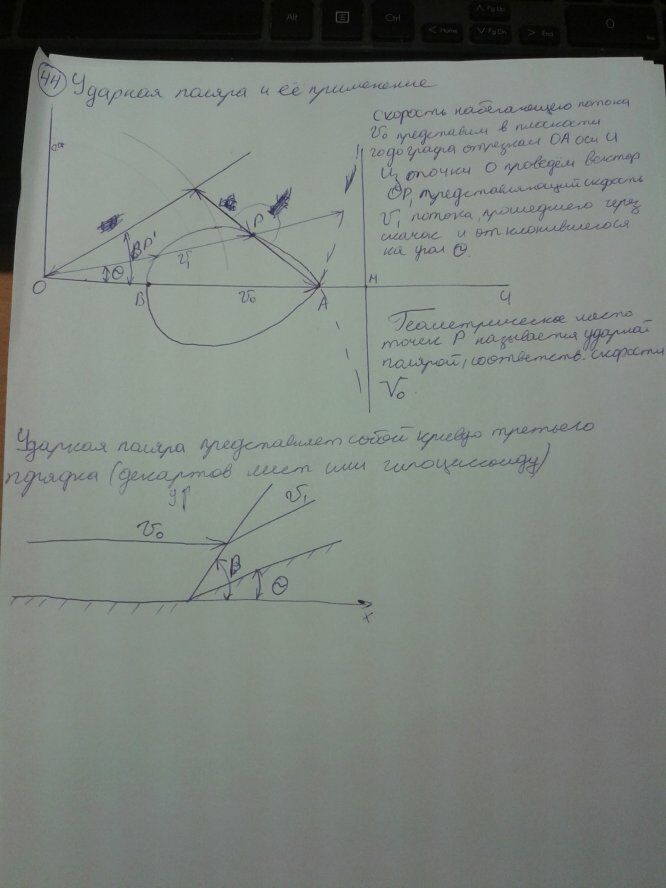 Alt
Ctrl
Home
PgUp
PgDn
End
44 Ударная поляра и её применение
скорость набегающего потока
V₀ представим в плоскости
годографа отрезком OA оси U
Из точки O проведём вектор
OP, представляющий скорость
V₁ потока, прошедшего через
скачок и отклонившегося
на угол Θ.
P
B P'
Θ
V₁
O
B
V₀
A
M
U
Геометрическое место
точек P называется ударной
полярой, соответств. скорости
V₀.
Ударная поляра представляет собой кривую третьего
порядка (декартов лист или гипоциссоиду)
y
V₁
V₀
B
Θ
x